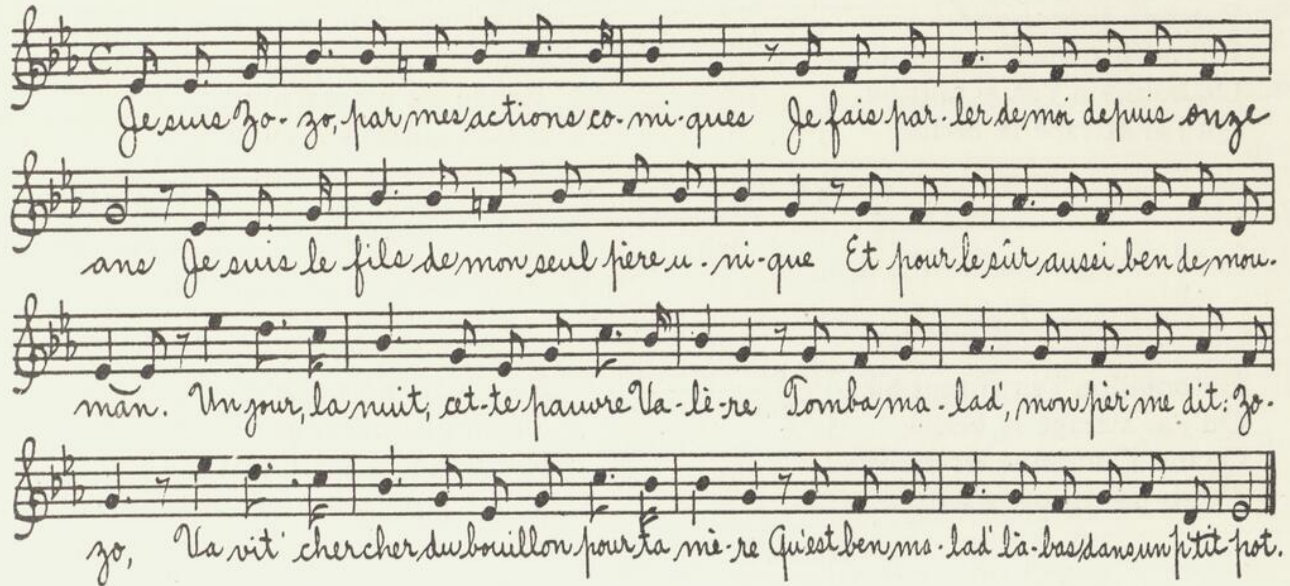 Je suis Zo-zo, par mes actions co-mi-ques Je fais par-ler de moi depuis onze
ans Je suis le fils de mon seul père u-ni-que Et pour le sûr aussi ben de mou-
man. Un jour, la nuit, cet-te pauvre Va-lè-re Tomba ma-lad', mon pèr' me dit: Zo-
zo, Va vit' chercher du bouillon pour ta mè-re Qu'est ben ma-lad' là-bas dans un p'tit pot.